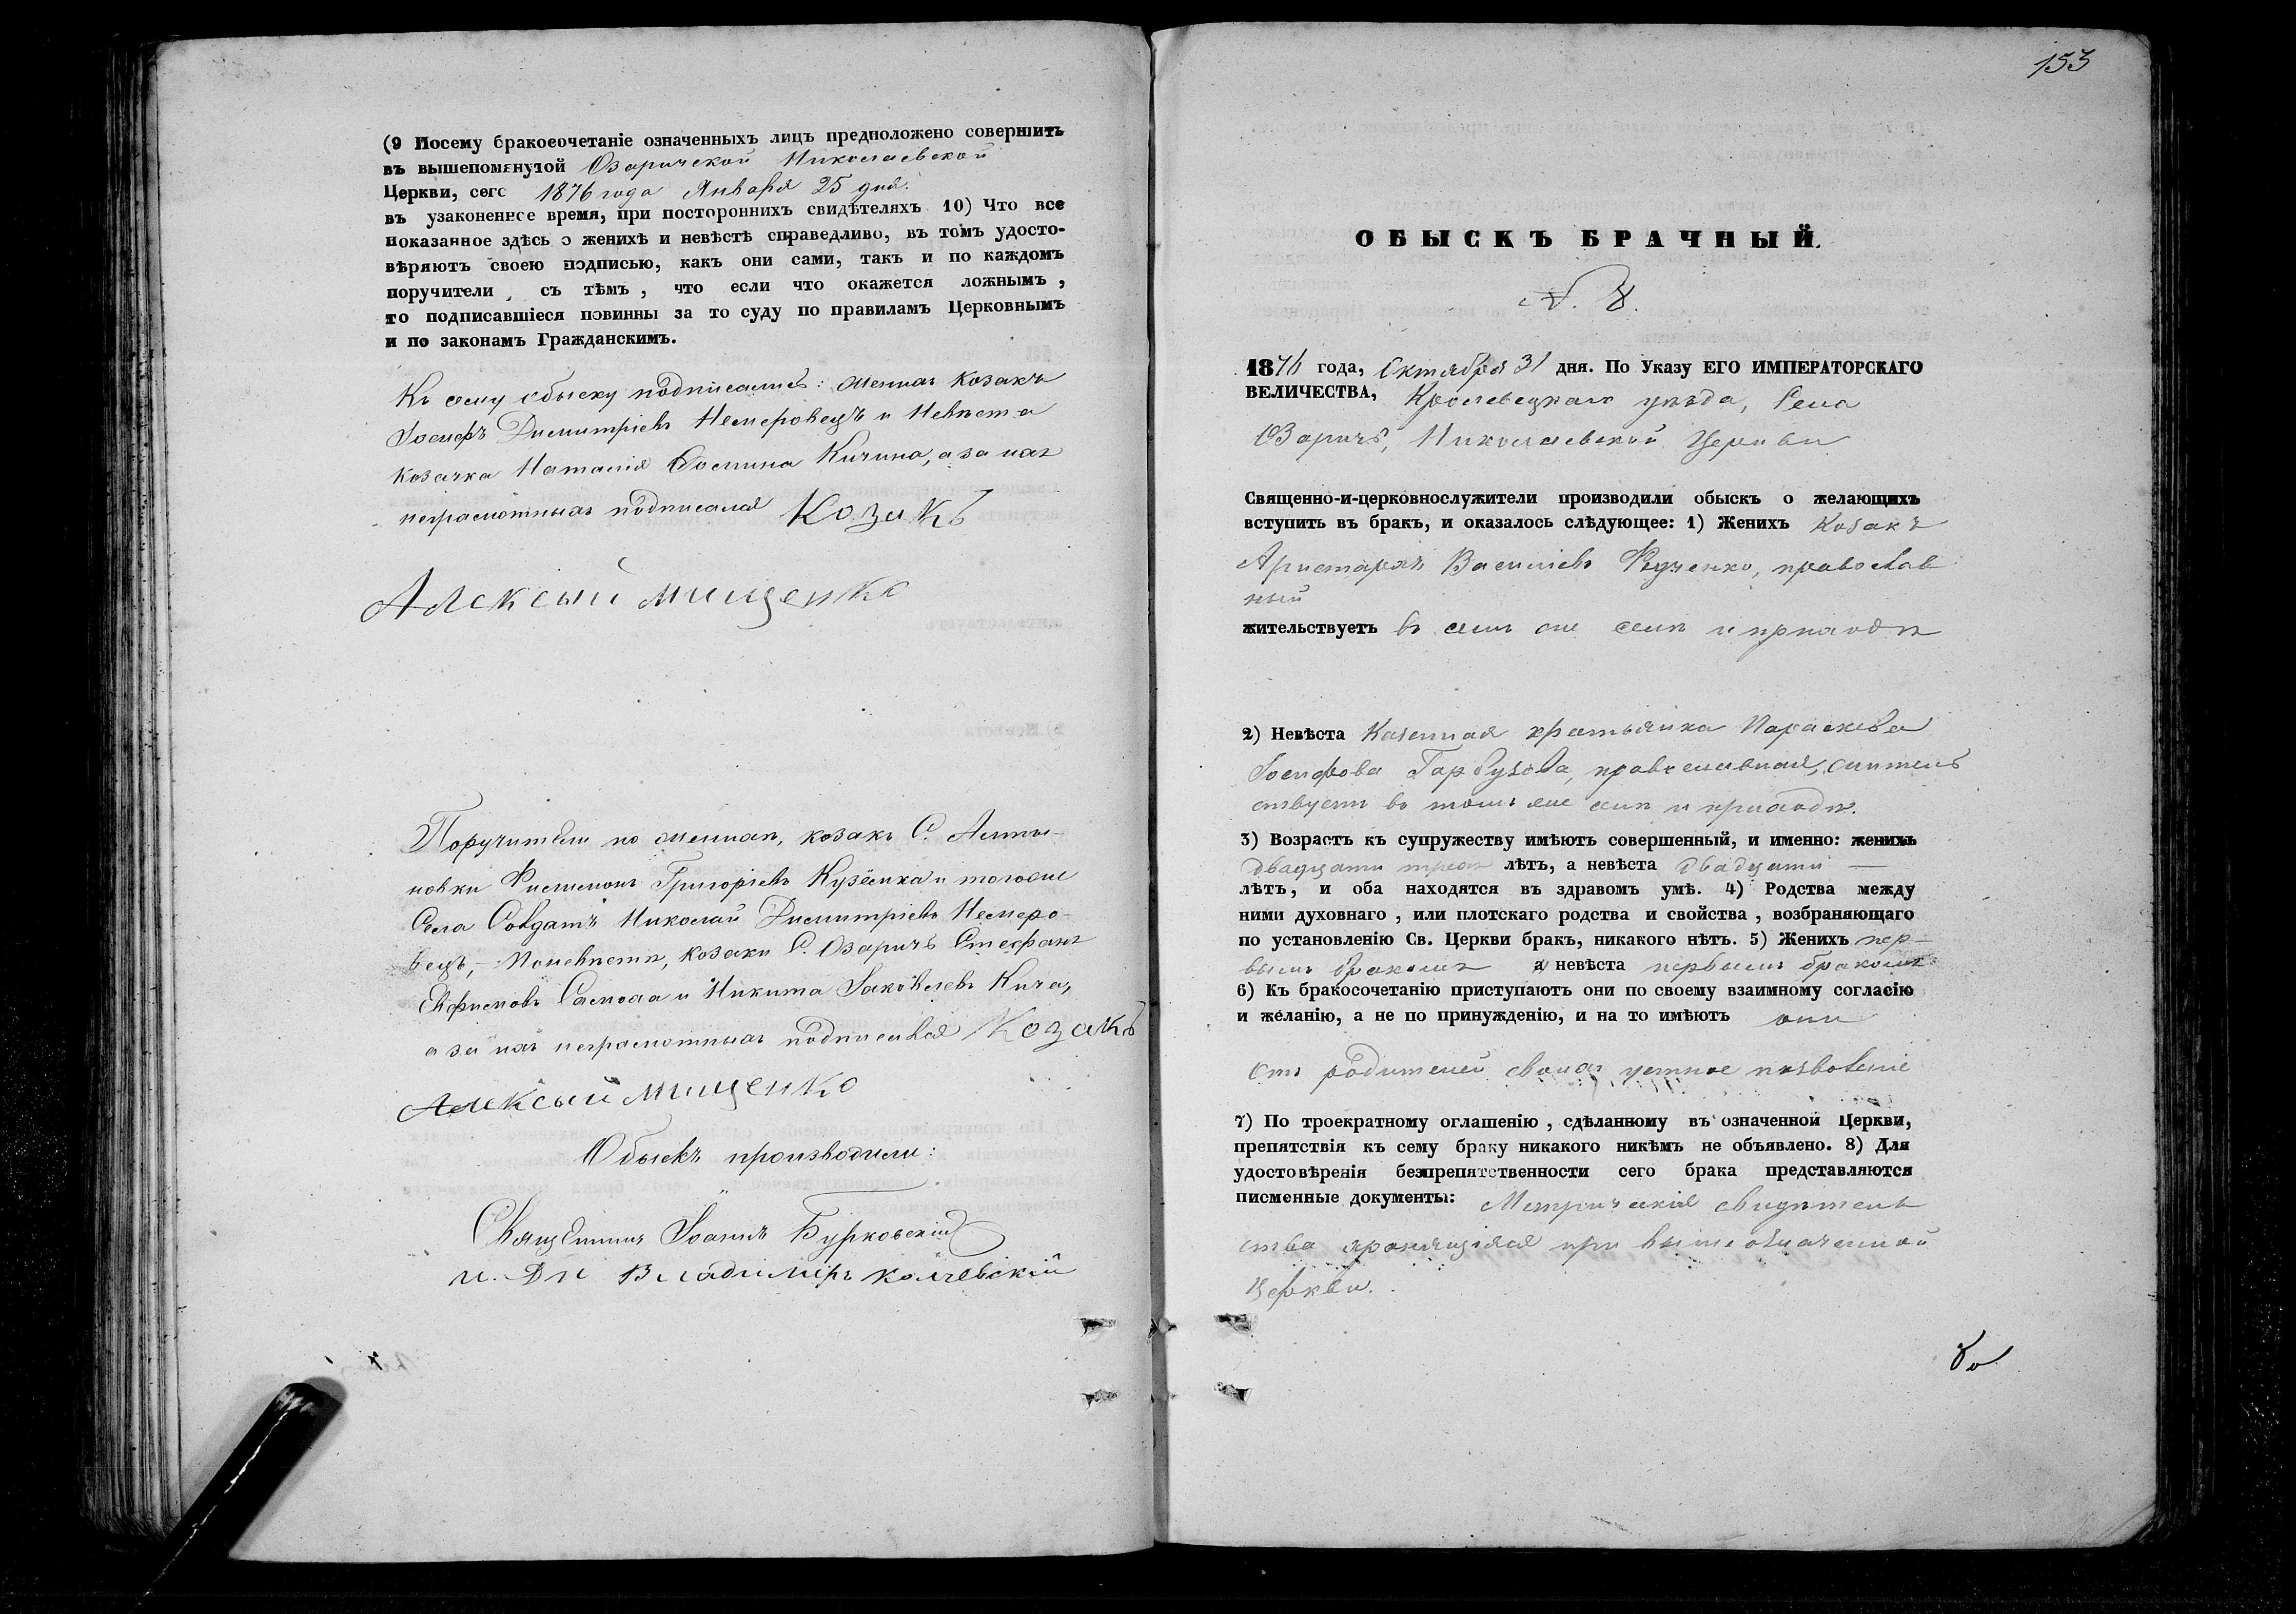 (9 Посему бракосочетаніе означенныхъ лицъ предположено совершить
въ вышепомянутой Озаричской Николаевской
Церкви, сего 1876 года Января 25 дня.
въ узаконенное время, при постороннихъ свидѣтеляхъ 10) Что все
показанное здѣсь о женихѣ и невѣстѣ справедливо, въ томъ удосто-
вѣряютъ своею подписью, какъ они сами, такъ и по каждомъ
поручители, съ тѣмъ, что если что окажется ложнымъ,
то подписавшіеся повинны за то суду по правиламъ Церковнымъ
и по законамъ Гражданскимъ.
Къ сему обыску подписались: женихъ козакъ
Іосифъ Димитріевъ Немеровецъ и Невѣста
козачка Наталія Кичина, а за нихъ
неграмотныхъ подписался Козакъ
Алексый Мищенко
Поручители по женихѣ, козакъ С. Алты-
новки Филимонъ Григоріевъ Кузёмка и тогоже
Села Солдатъ Николай Димитріевъ Немеро-
вецъ, – Поневѣстѣ, козаки С. Озаричъ Стефанъ
Ефимовъ Самоха и Никита Іаковлевъ Кича,
а за ихъ неграмотныхъ подписался Козакъ
Алексый Мищенко
Обыскъ производили:
Священникъ Іоаннъ Бурковскій
и. д. п. Владиміръ Колчевскій
153
ОБЫСКЪ БРАЧНЫЙ.
N. 8.
1876 года, Октября 31 дня. По Указу ЕГО ИМПЕРАТОРСКАГО
ВЕЛИЧЕСТВА, Кролевецкаго уѣзда, Села
Озаричъ, Николаевской Церкви
Священно-и-церковнослужители производили обыскъ о желающихъ
вступить въ бракъ, и оказалось слѣдующее: 1) Женихъ Козакъ
Аристархъ Василіевъ Федченко, православ
ный
жительствуетъ въ семъ же селѣ и приходѣ
2) Невѣста Казенная крестьянка Параскева
Іосифова Гарбузова, православная, житель
ствуетъ въ томъ же селѣ и приходѣ.
3) Возрастъ къ супружеству имѣютъ совершенный, и именно: женихъ
двадцати трехъ лѣтъ, а невѣста двадцати —
лѣтъ, и оба находятся въ здравомъ умѣ. 4) Родства между
ними духовнаго, или плотскаго родства и свойства, возбраняющаго
по установленію Св. Церкви бракъ, никакого нѣтъ. 5) Женихъ пер-
вымъ бракомъ а невѣста первымъ бракомъ
6) Къ бракосочетанію приступаютъ они по своему взаимному согласію
и желанію, а не по принужденію, и на то имѣютъ они
отъ родителей своихъ устное позволеніе
7) По троекратному оглашенію, сдѣланному въ означенной Церкви,
препятствія къ сему браку никакого никѣмъ не объявлено. 8) Для
удостовѣренія безпрепятственности сего брака представляются
писменные документы: Метрическія свидѣтель
ства хранящіяся при вышеозначенной
Церкви.